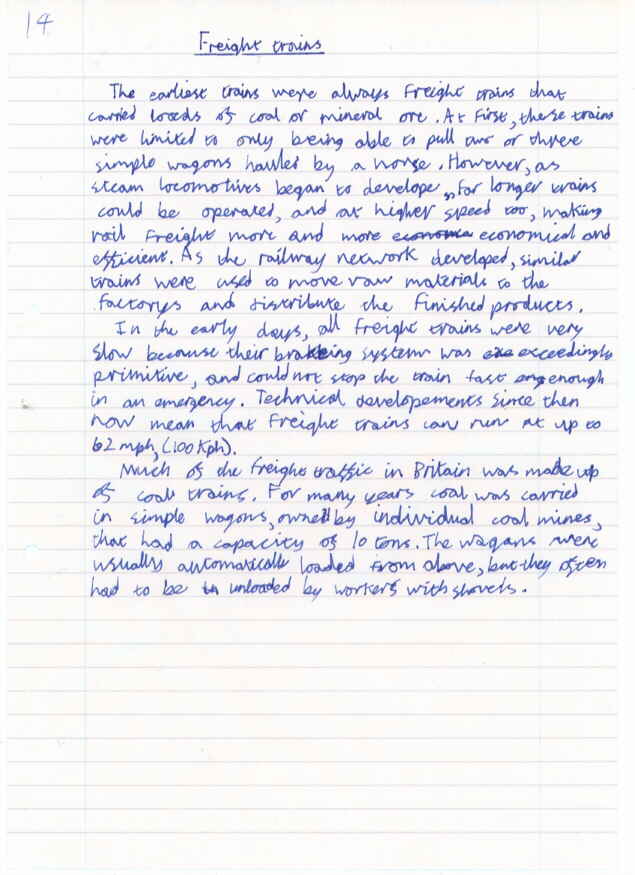 14
Freight trains
The earliest trains were always Freight trains that
carried loads of coal or mineral ore. At First, these trains
were limited to only being able to pull two or three
simple wagons hauled by a horse. However, as
steam locomotives began to develope, far longer trains
could be operated, and at higher speed too, making
rail Freight more and more economical and
efficient. As the railway network developed, similar
trains were used to move raw materials to the
factorys and distribute the finished products.
In the early days, all freight trains were very
slow because their braking system was exceedingly
primitive, and could not stop the train fast enough
in an emergency. Technical developements since then
now mean that Freight trains can run at up to
62 mph, (100 Kph).
Much of the freight traffic in Britain was made up
of coal trains. For many years coal was carried
in simple wagons, owned by individual coal mines,
that had a capacity of 10 tons. The wagons were
usually automatically loaded from above, but they often
had to be unloaded by workers with shovels.